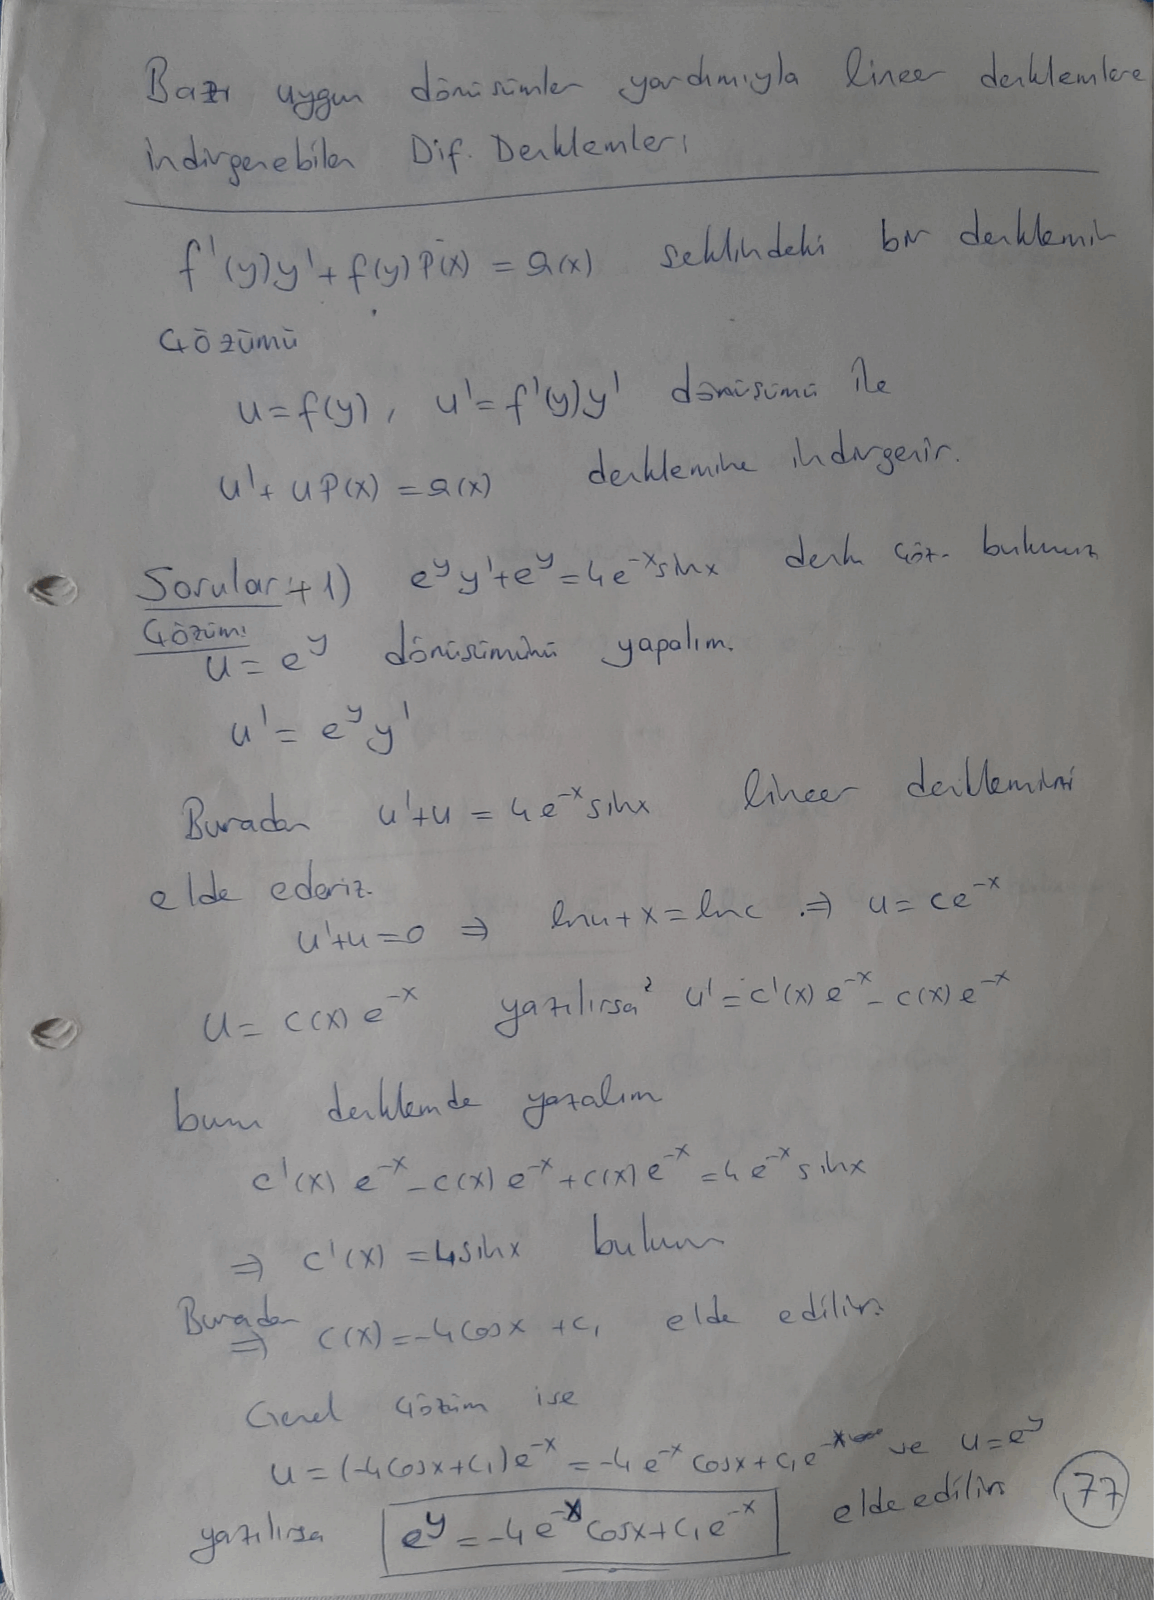 Bazı uygun dönüşümler yardımıyla lineer denklemlere
indirgenebilen Dif. Denklemleri
f'(y)y' + f(y)P(x) = Q(x) şeklindeki bir denklemin
Çözümü
u = f(y), u' = f'(y)y' dönüşümü ile
u' + uP(x) = Q(x) denklemine indirgenir.
Sorular: 1) e^y y' + e^y = 4e^-x sinx denk çöz. bulunuz
Çözüm:
u = e^y dönüşümünü yapalım.
u' = e^y y'
Buradan u' + u = 4e^-x sinx lineer denklemini
elde ederiz.
u' + u = 0 ⇒ lnu + x = lnc ⇒ u = ce^-x
u = c(x) e^-x yazılırsa u' = c'(x) e^-x - c(x) e^-x
bunu denklemde yazalım
c'(x) e^-x - c(x) e^-x + c(x) e^-x = 4e^-x sinx
⇒ c'(x) = 4sinx bulunur
Buradan
⇒ c(x) = -4cosx + c₁ elde edilir.
Genel çözüm ise
u = (-4cosx + c₁)e^-x = -4e^-x cosx + c₁e^-x ve u = e^y
yazılırsa e^y = -4e^-x cosx + c₁e^-x elde edilir
77